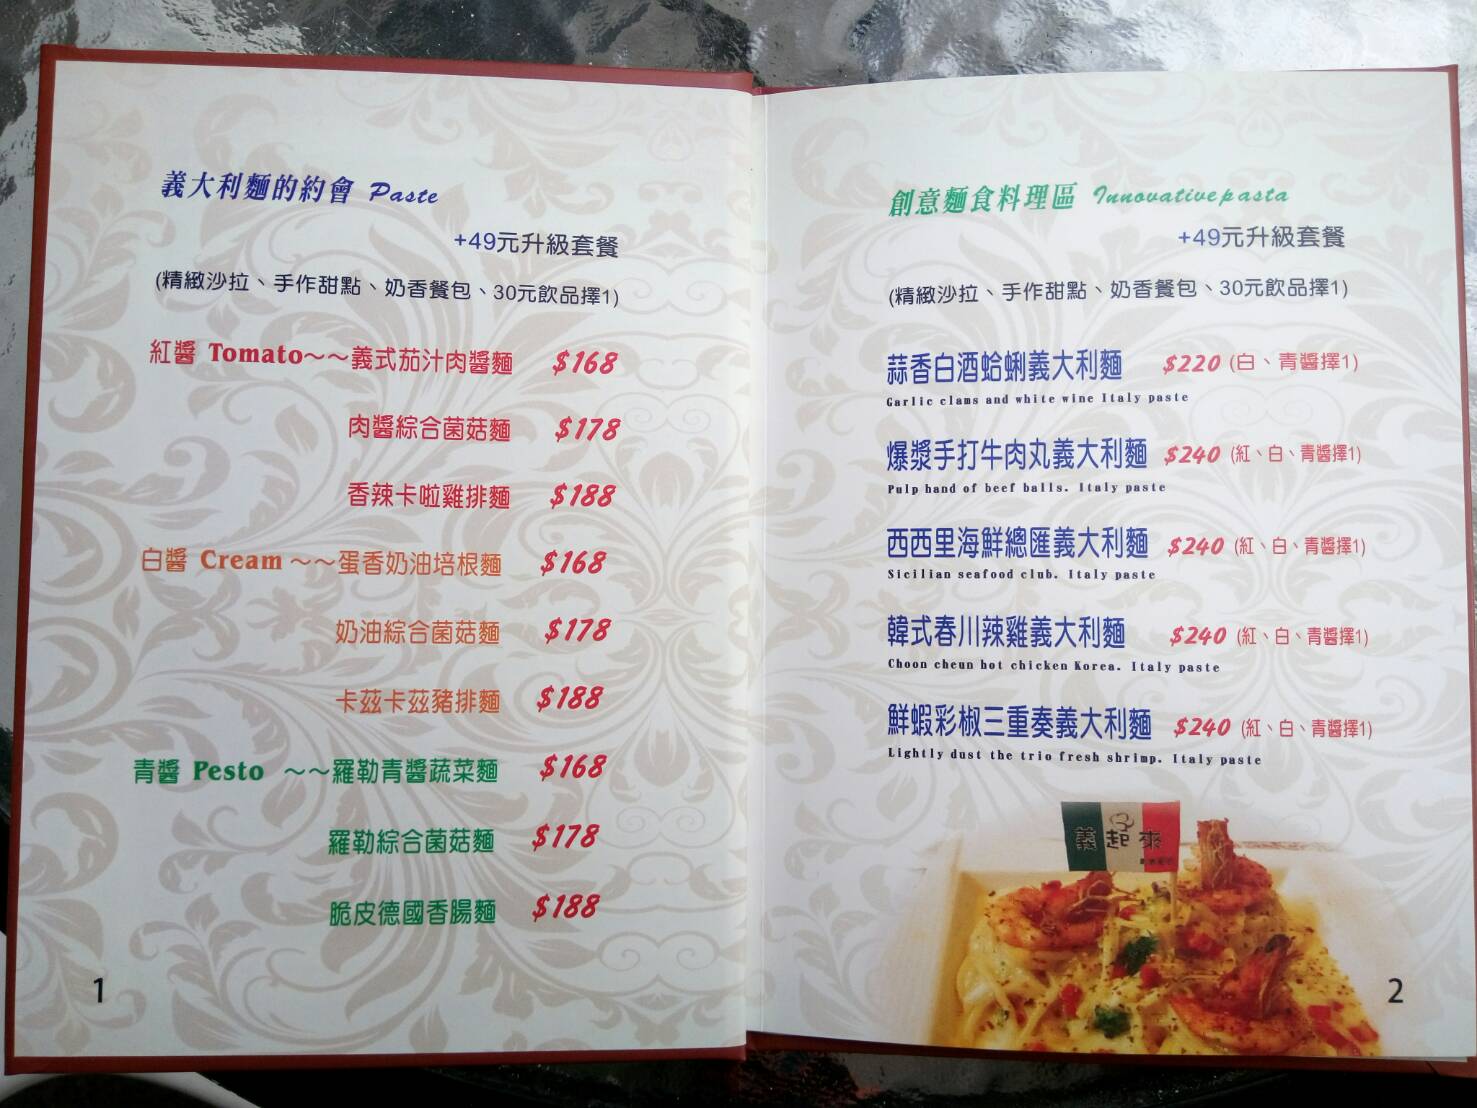 義大利麵的約會 Paste
+49元升級套餐
(精緻沙拉、手作甜點、奶香餐包、30元飲品擇1)
紅醬 Tomato～～義式茄汁肉醬麵 $168
肉醬綜合菌菇麵 $178
香辣卡啦雞排麵 $188
白醬 Cream～～蛋香奶油培根麵 $168
奶油綜合菌菇麵 $178
卡茲卡茲豬排麵 $188
青醬 Pesto ～～羅勒青醬蔬菜麵 $168
羅勒綜合菌菇麵 $178
脆皮德國香腸麵 $188
1
創意麵食料理區 Innovativepasta
+49元升級套餐
(精緻沙拉、手作甜點、奶香餐包、30元飲品擇1)
蒜香白酒蛤蜊義大利麵 $220 (白、青醬擇1)
Garlic clams and white wine Italy paste
爆漿手打牛肉丸義大利麵 $240 (紅、白、青醬擇1)
Pulp hand of beef balls. Italy paste
西西里海鮮總匯義大利麵 $240 (紅、白、青醬擇1)
Sicilian seafood club. Italy paste
韓式春川辣雞義大利麵 $240 (紅、白、青醬擇1)
Choon cheun hot chicken Korea. Italy paste
鮮蝦彩椒三重奏義大利麵 $240 (紅、白、青醬擇1)
Lightly dust the trio fresh shrimp. Italy paste
義起來
2